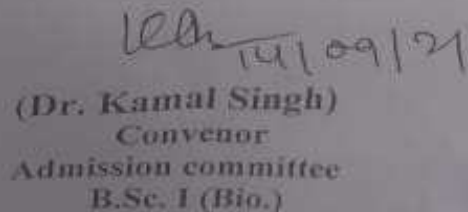 14/09/21
(Dr. Kamal Singh)
Convenor
Admission committee
B.Sc. I (Bio.)